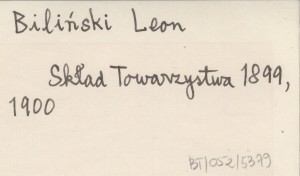 Biliński Leon
Skład Towarzystwa 1899,
1900
BT/052/5379